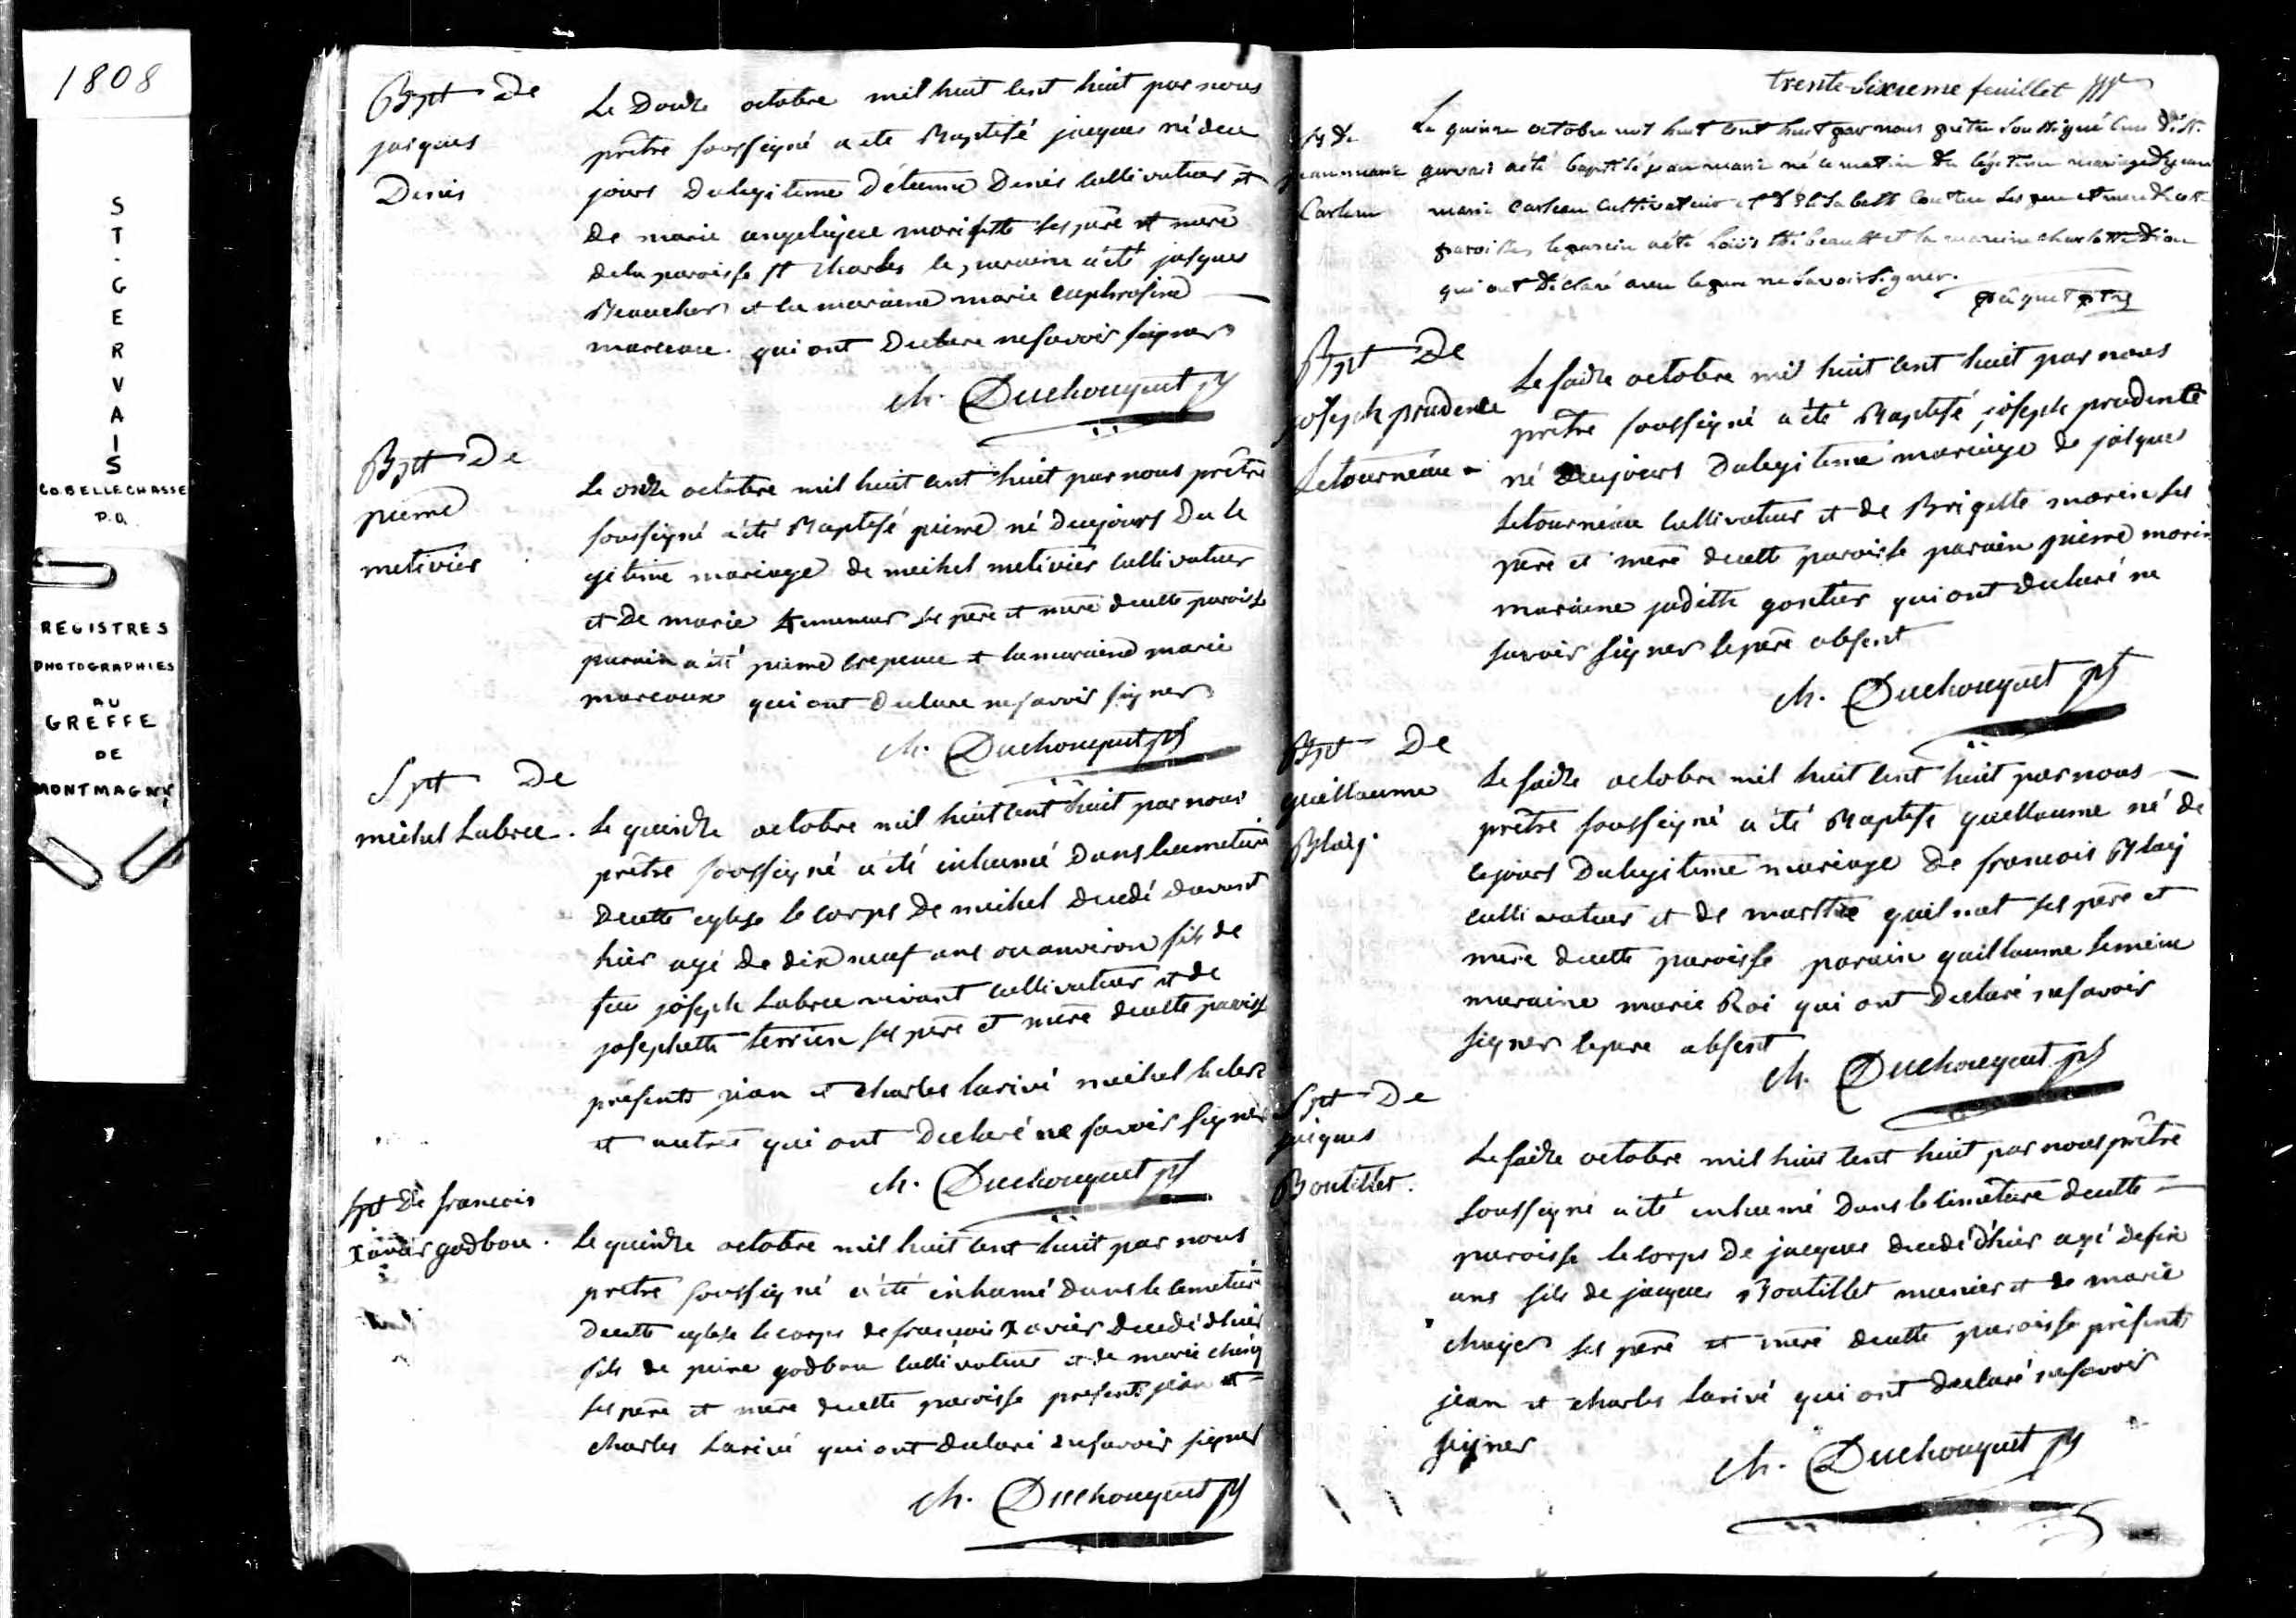 1808
ST. GERVAIS
CO. BELLECHASSE
P.Q.
REGISTRES
PHOTOGRAPHIES
AU
GREFFE
DE
MONTMAGNY
Bptt De
jasques
Denis
Le Douze octobre mil huit cent huit par nous
prêtre soussigné a ete Baptisé jacques né deu
jours Dulegitime Détienne Denis cultivateur et
De marie angelique morisette ses père et mere
dela paroisse st charles le paraine a été jasques
Beaucher et la maraine marie euphrosine
marceau. qui ont Declare nesavoir signer
ch. Duchouquet ptr
Bptt De
pierre
metivier
Le onze octobre mil huit cent huit par nous prêtre
soussigné a été Baptisé pierre né Deujours Du le
gitime mariage de michel metivier cultivateur
et De marie ses père et mere decette paroisse
parain a été pierre crepeau et la maraine marie
marceaux qui ont Declare nesavoir signer
ch. Duchouquet ptr
Sptt De
michel Labrec.
Le quinze octobre mil huit cent huit par nous
prêtre soussigné a été inhumé Dans lecimetiere
Decette eglise le corps De michel decedé davant
hier agé De dix neuf ans ou anviron fils de
feu joseph Labrec vivant cultivateur et de
josephette terrien ses père et mere decette paroisse
présents jean et charles larivé michel
et autres qui ont Declaré ne savoir signer
ch. Duchouquet ptr
Sptt De francois
Xavier godbou.
Le quinze octobre mil huit cent huit par nous
pretre soussigné a été inhumé dans le cimetiere
Decette eglise le corps de francois Xavier Decedé dhier
fils de peire godbou cultivateur et de marie
ses père et mere decette paroisse present jean et
charles Larivé qui ont declaré nesavoir signer
ch. Duchouquet ptr
trente-sixieme feuillet
B. de
jeanmarie
Carbeau
Le quinze octobre mil huit cent huit par nous prêtre soussigné curé de St.
gervais a été baptisé jean marie né ce matin du légitime mariage de jean
marie cultivateur et d'Elisabeth ses pere et mere de cette
paroisse, le parein a été Louis thibeault et la mareine charlotte Dion
qui ont déclaré avec le pere ne savoir signer.
pâquet ptre
Bptt De
joseph prudente
Letourneau
Le saize octobre mil huit cent huit par nous
prêtre soussigné a été Baptisé joseph prudente
né Deujours Dulegitime mariage de jasques
Letourneau cultivateur et de Brigette morin ses
père et mere decette paroisse parain pierre morin
maraine judith gontier qui ont declaré ne
savoir signer le père absent
ch. Duchouquet ptr
Bptt De
guillaume
Blaij
Le saize octobre mil huit cent huit par nous
prêtre soussigné a été Baptisé guillaume né de
cejours Dulegitime mariage De francois Blaij
cultivateur et de marthe guilmet ses père et
mere decette paroisse parain guillaume Lemieu
maraine marie Roi qui ont Declaré nesavoir
signer le pere absent
ch. Duchouquet ptr
Sptt De
jaques
Boutillet.
Le saize octobre mil huit cent huit par nous prêtre
soussigné a été inhumé Dans le cimetiere decette
paroisse le corps De jacques decedé dhier agé de six
ans fils de jacques Boutillet et de marie
ses père et mere decette paroisse présents
jean et charles larivé qui ont declaré nesavoir
signer
ch. Duchouquet ptr